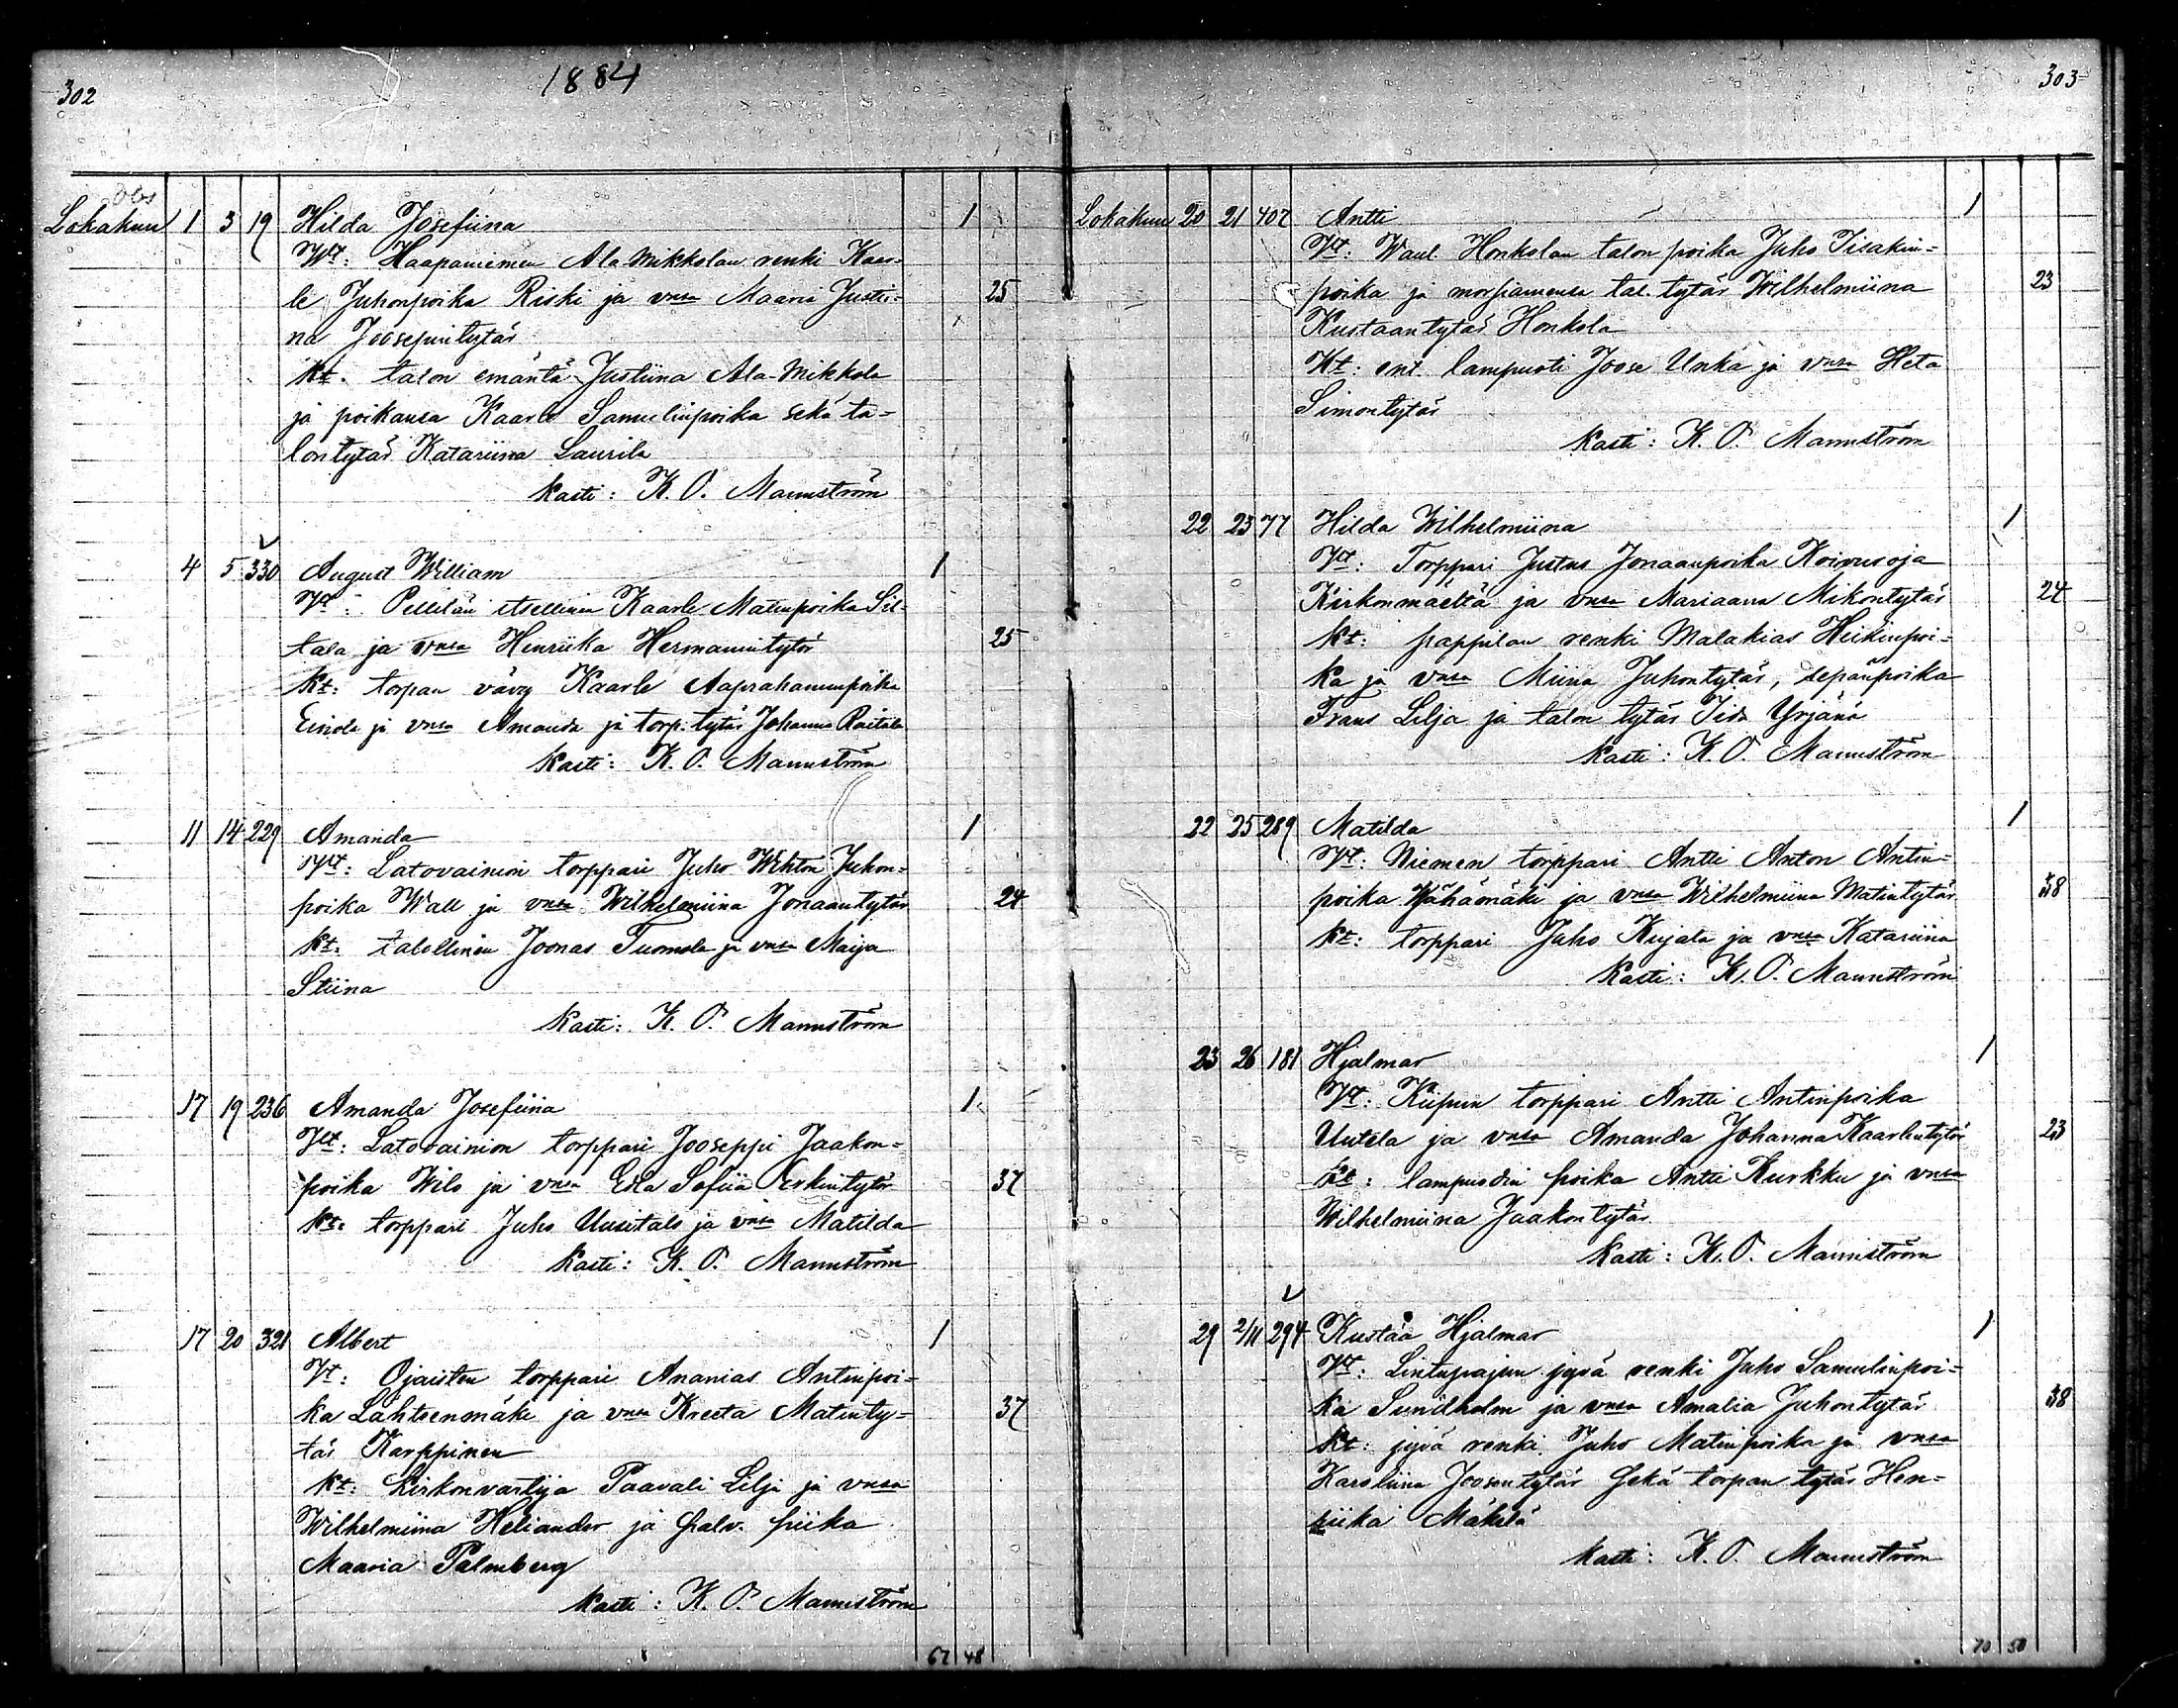 302
1884
Obs
Lokakuu 1 3 19 Hilda Josefiina 1
Vt: Haapaniemen Ala Mikkolan renki Kaar-
le Juhonpoika Riski ja vnsa Maaria Justii- 25
na Joosepintytär
kt. talon emäntä Justiina Ala-Mikkola
ja poikansa Kaarle Samulinpoika sekä ta-
lontytär Katariina Laurila
kasti: K. O. Mannström
4 5 330 August William 1
Vt: Pellilän itsellinen Kaarle Matinpoika Sil-
tala ja vnsa Henriika Hermannintytär 25
kt: torpan vävy Kaarle Aaprahaminpoika
Einola ja vnsa Amanda ja torp. tytär Johanna Raitala
kasti: K. O. Mannström
11 14 229 Amanda 1
Vt: Latovainion torppari Juho Wihtori Juhon-
poika Wall ja vnsa Wilhelmiina Jonaantytär 24
kt: talollinen Joonas Tuomola ja vnsa Maija
Stiina
kasti: K. O. Mannström
17 19 236 Amanda Josefiina 1
Vt: Latovainion torppari Jooseppi Jaakon-
poika Wilo ja vnsa Eeva Sofiia Erkintytär 37
kt: torppari Juho Uusitalo ja vnsa Matilda
kasti: K. O. Mannström
17 20 321 Albert 1
Vt: Ojaisten torppari Ananias Antinpoi-
ka Lähteenmäki ja vnsa Kreeta Matinty- 37
tär Karppinen
kt: kirkonvartija Paavali Lilja ja vnsa
Wilhelmiina Heliander ja palv. piika
Maaria Palmberg
kasti: K. O. Mannström
67 48
303
Lokakuu 20 21 407 Antti 1
Vt: Waul. Honkolan talon poika Juho Iisakin-
poika ja morsiamensa tal. tytär Wilhelmiina 23
Kustaantytär Honkola
Kt: ent. lampuoti Joose Unkå ja vnsa Heta
Simontytär
kasti: K. O. Mannström
22 23 77 Hilda Wilhelmiina 1
Vt: Torppari Justus Jonaanpoika Koivusoja
Kirkonmäeltä ja vnsa Mariaana Mikontytär 24
kt: pappilan renki Malakias Heikinpoi-
ka ja vnsa Miina Juhontytär, sepänpoika
Frans Lilja ja talon tytär Iida Yrjänä
kasti: K. O. Mannström
22 25 289 Matilda 1
Vt: Niemen torppari Antti Anton Antin-
poika Vähämäki ja vnsa Wilhelmiina Matintytär 38
kt: torppari Juho Kujala ja vnsa Katariina
kasti: K. O. Mannström
23 26 181 Hjalmar 1
Vt: Kiipun torppari Antti Antinpoika
Uutela ja vnsa Amanda Johanna Kaarlentytär 23
kt: lampuodin poika Antti Kurkku ja vnsa
Wilhelmiina Jaakontytär
kasti: K. O. Mannström
29 2/11 294 Kustaa Hjalmar 1
Vt: Lintupajun jyvä renki Juho Samulinpoi-
ka Sundholm ja vnsa Amalia Juhontytär 38
kt: jyvä renki Juho Matinpoika ja vnsa
Karoliina Joosentytär sekä torpan tytär Hen-
riika Mäkelä
kasti: K. O. Mannström
70 50